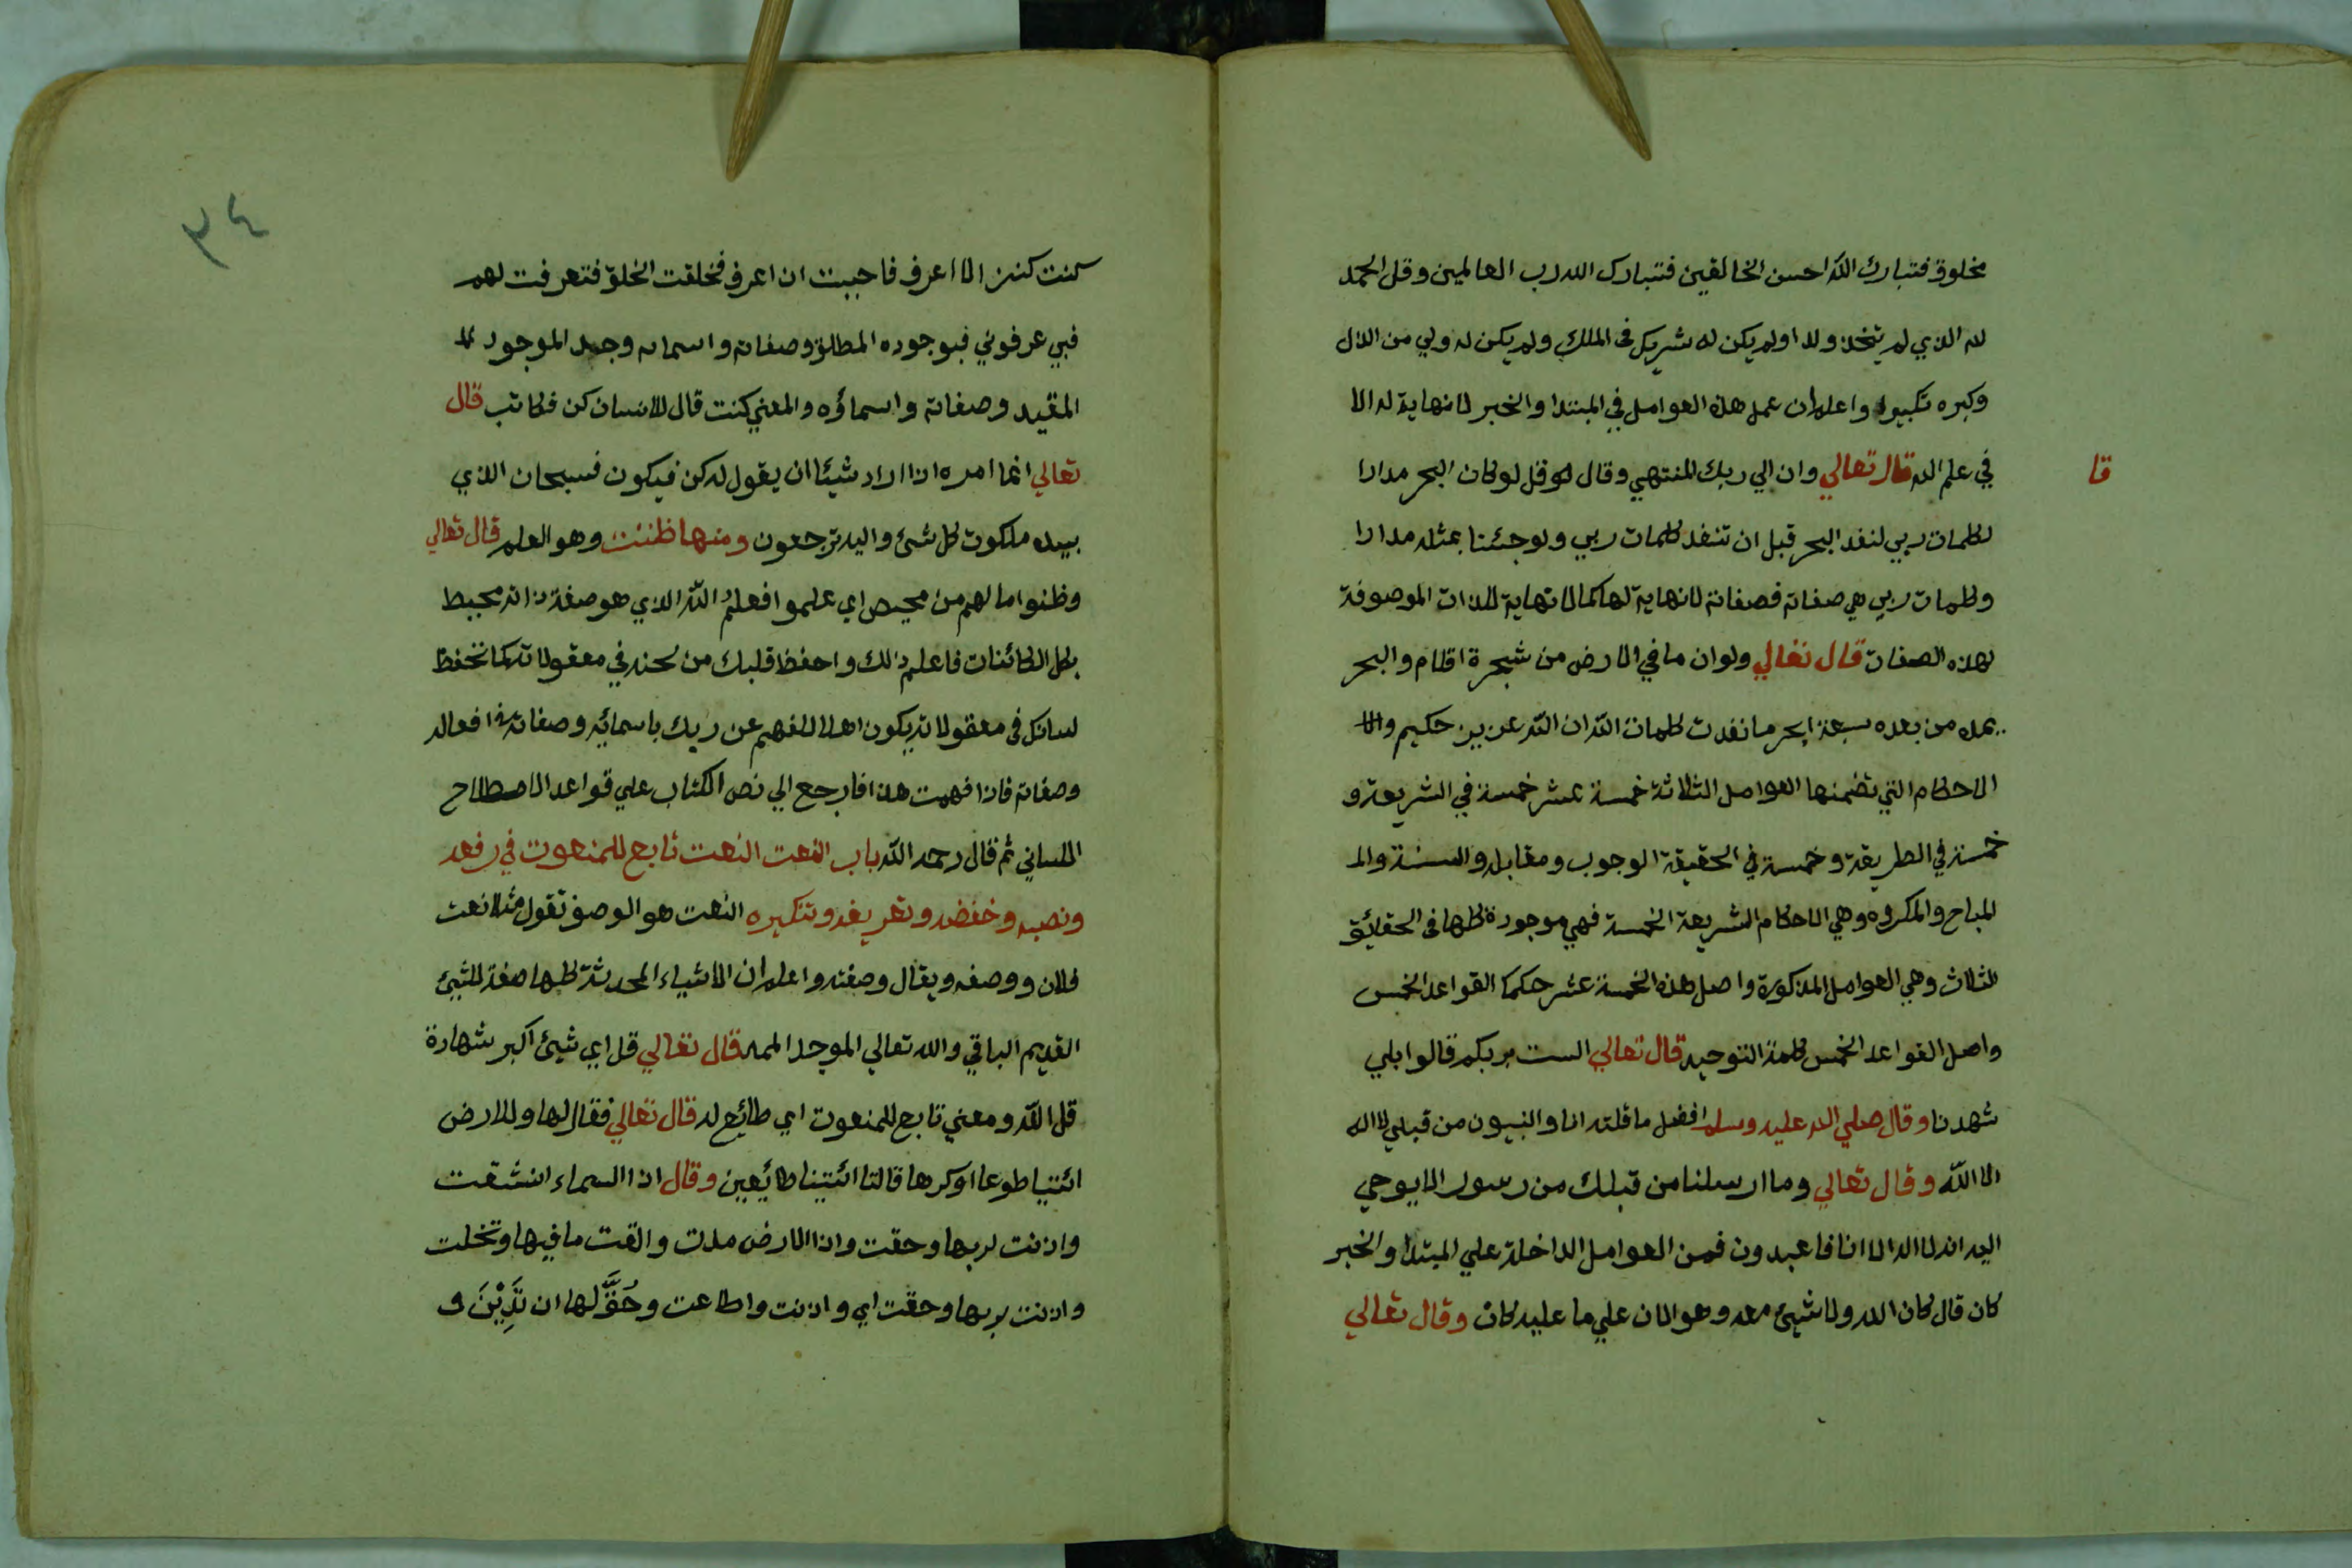 مخلوق فتبارك الله احسن الخالقين فتبارك الله رب العالمين وقل الحمد
لله الذي لم يتخذ ولدا ولم يكن له شريك في الملك ولم يكن له ولي من الذل
وكبره تكبيرا واعلم ان عمل هذه العوامل في المبتدا والخبر لا نهاية له الا
قا
في علم الله قال تعالي وان الي ربك المنتهي وقال قل لو كان البحر مدادا
لكلمات ربي لنفد البحر قبل ان تنفد كلمات ربي ولو جئنا بمثله مدادا
وكلمات ربي هي صفاته فصفاته لا نهاية لها كما لا نهاية للذات الموصوفة
لهذه الصفات قال تعالي ولو ان ما في الارض من شجرة اقلام والبحر
يمده من بعده سبعة ابحر ما نفدت كلمات الله ان الله عزيز حكيم
الاحكام التي تضمنها العوامل الثلاثة خمسة عشر خمسة في الشريعة و
خمسة في الطريقة وخمسة في الحقيقة الوجوب ومقابله والسنة وال
المباح والمكروه وهي الاحكام الشريعة الخمسة فهي موجودة كلها في الحقايق
الثلاث وهي العوامل المذكورة واصل هذه الخمسة عشر حكما القواعد الخمس
واصل القواعد الخمس كلمة التوحيد قال تعالي الست بربكم قالوا بلي
شهدنا وقال صلي الله عليه وسلم افضل ما قلته انا والنبيون من قبلي لا اله
الا الله وقال تعالي وما ارسلنا من قبلك من رسول الا يوحي
اليه انه لا اله الا انا فاعبدون فمن العوامل الداخلة علي المبتدا والخبر
كان قال كان الله ولا شيئ معه وهو الان علي ما عليه كان وقال تعالي
٣٤
كنت كنزا لا اعرف فاحببت ان اعرف فخلقت الخلق فتعرفت لهم
فبي عرفوني فبوجوده المطلق وصفاته واسمائه وجد الموجود
المقيد وصفاته واسماؤه والمعني كنت قال للانسان كن فكانت قال
تعالي انما امره اذا اراد شيئا ان يقول له كن فيكون فسبحان الذي
بيده ملكوت كل شئ واليه ترجعون ومنها ظننت وهو العلم قال تعالي
وظنوا ما لهم من محيص اي علموا فعلم الله الذي هو صفة ذاته محيط
بكل الكائنات فاعلم ذلك واحفظ قلبك من لحنه في معقولاته كما تحفظ
لسانك في معقولاته يكون اهلا للفهم عن ربك باسمائه وصفاته افعاله
وصفاته فاذا فهمت هذا فارجع الي نص الكتاب علي قواعد الاصطلاح
اللساني ثم قال رحمه الله باب النعت النعت تابع للمنعوت في رفعه
ونصبه وخفضه وتعريفه وتنكيره النعت هو الوصف تقول مثلا نعت
فلان ووصفه ويقال وصفته واعلم ان الاشياء المحدثة كلها صفة للشيئ
القديم الباقي والله تعالي الموجد الممد قال تعالي قل اي شيئ اكبر شهادة
قل الله ومعني تابع للمنعوت اي طايع له قال تعالي فقال لها وللارض
ائتيا طوعا اوكرها قالتا ائتينا طايعين وقال اذا السماء انشقت
واذنت لربها وحقت واذا الارض مدت والقت ما فيها وتخلت
واذنت لربها وحقت اي واذنت واطاعت وحق لها ان